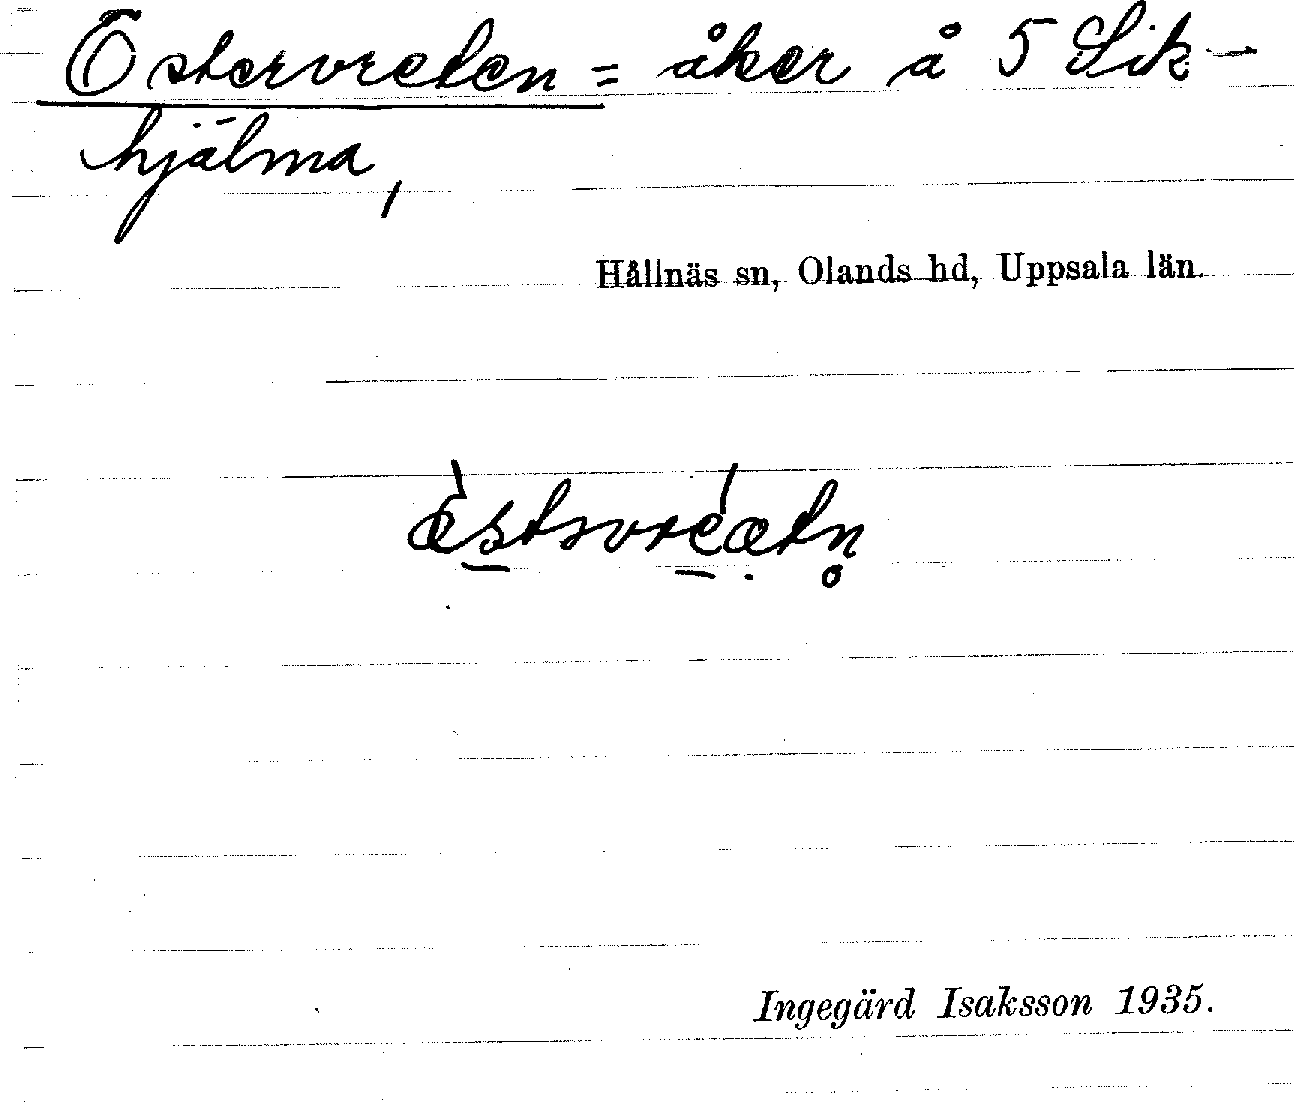 Östervreten = åker å 5 Sik-
hjälma,
Hållnäs sn, Olands hd, Uppsala län.
Ingegärd Isaksson 1935.